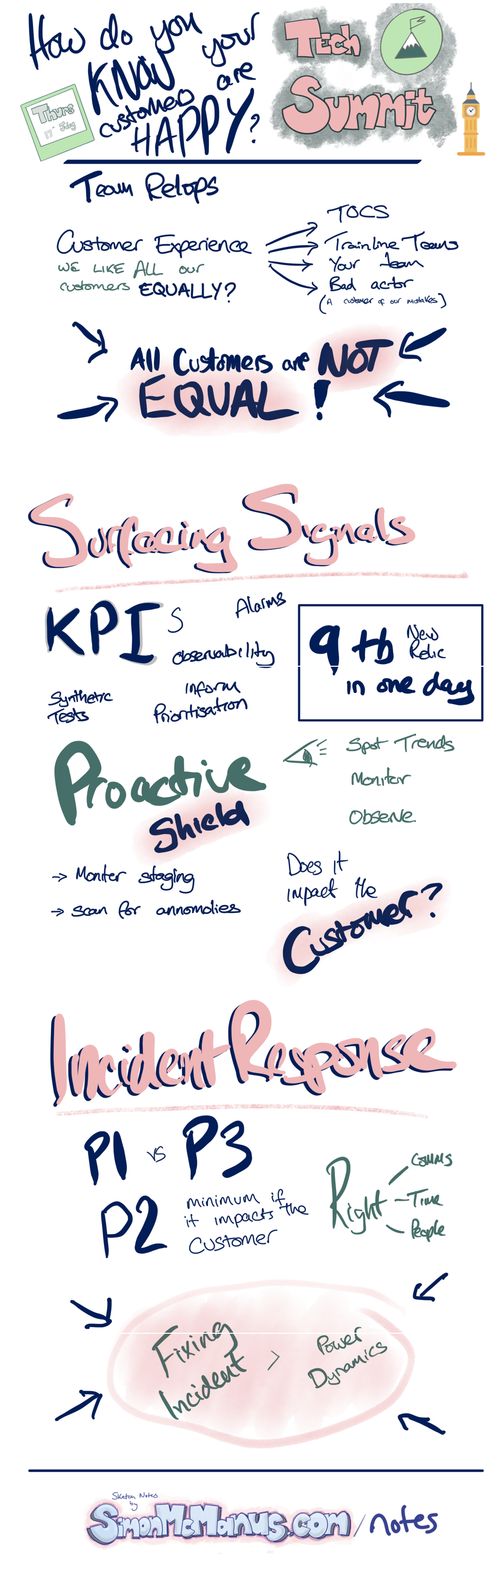 How do you
KNOW your
customeo are
HAPPY?
Thurs
Tech
Summit
Team Relops
Customer Experience
WE LIKE ALL our
customers EQUALLY?
TOCS
Trainline Teams
Your team
Bad actor
(A customer of our mistakes)
All Customers are NOT
EQUAL!
Surfacing Signals
KPIs
Alarms
observability
Synthetic
Tests
inform
Prioritisation
9th New
Relic
in one day
Proactive
Shield
Spot Trends
Monitor
Observe
→ Moniter staging
→ scan for annomolies
Does it
impact the
Customer?
Incident Response
P1 vs P3
P2 minimum if
it impacts the
Customer
Right
COMMS
Time
People
Fixing
Incident
>
Power
Dynamics
Sketch Notes
by
SimonMcManus.com/notes